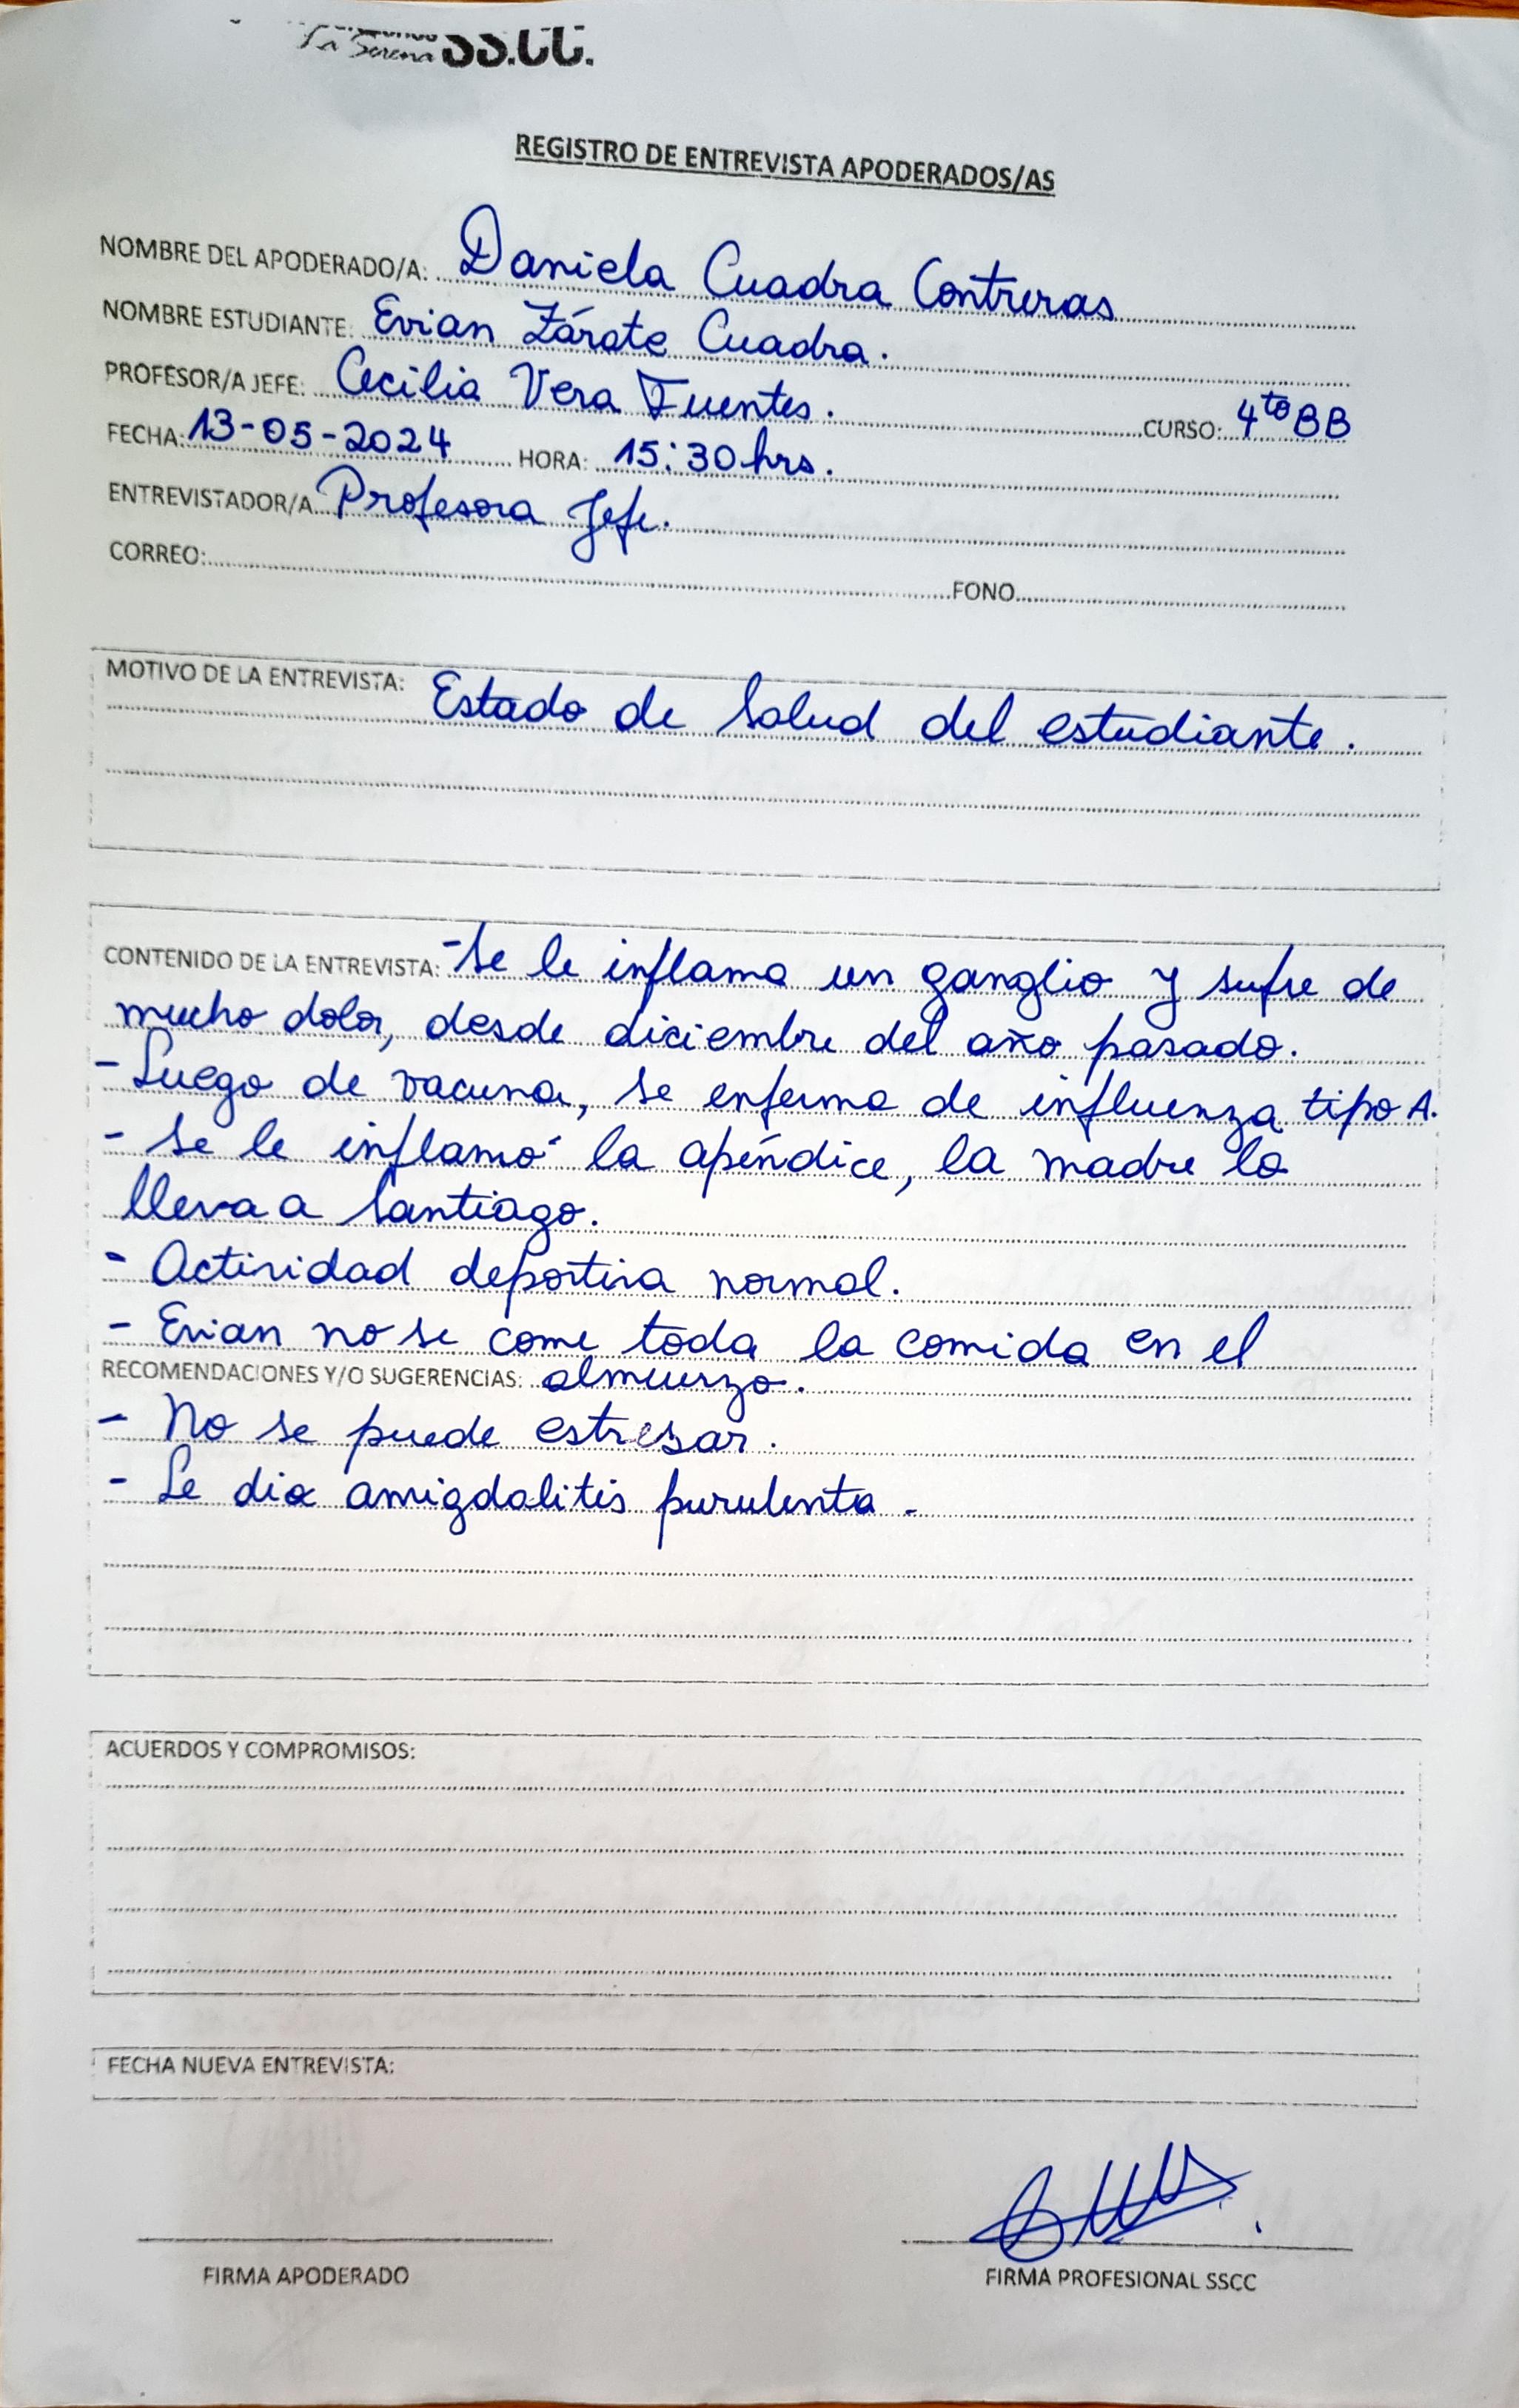 La Serena SS.CC.
REGISTRO DE ENTREVISTA APODERADOS/AS
NOMBRE DEL APODERADO/A: Daniela Cuadra Contreras
NOMBRE ESTUDIANTE: Evian Zárate Cuadra.
PROFESOR/A JEFE: Cecilia Vera Fuentes. CURSO: 4to BB
FECHA: 13-05-2024 HORA: 15:30 hrs.
ENTREVISTADOR/A Profesora Jefe.
CORREO: FONO
MOTIVO DE LA ENTREVISTA: Estado de Salud del estudiante.
CONTENIDO DE LA ENTREVISTA: -Se le inflama un ganglio y sufre de
mucho dolor, desde diciembre del año pasado.
- Luego de vacuna, se enferma de influenza tipo A.
- Se le inflamó la apéndice, la madre lo
lleva a Santiago.
- Actividad deportiva normal.
- Evian no se come toda la comida en el
RECOMENDACIONES Y/O SUGERENCIAS: almuerzo.
- No se puede estresar.
- Le dio amigdalitis purulenta.
ACUERDOS Y COMPROMISOS:
FECHA NUEVA ENTREVISTA:
FIRMA APODERADO
FIRMA PROFESIONAL SSCC